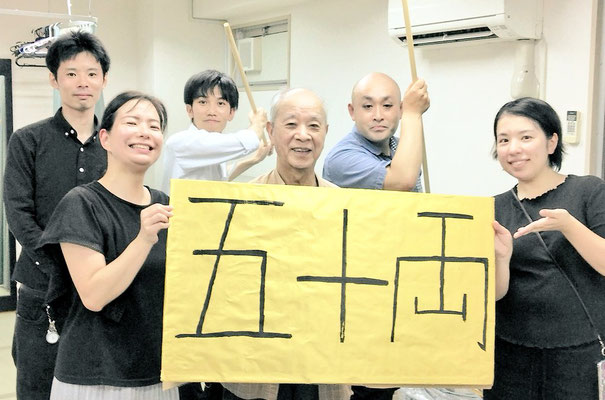 五十両